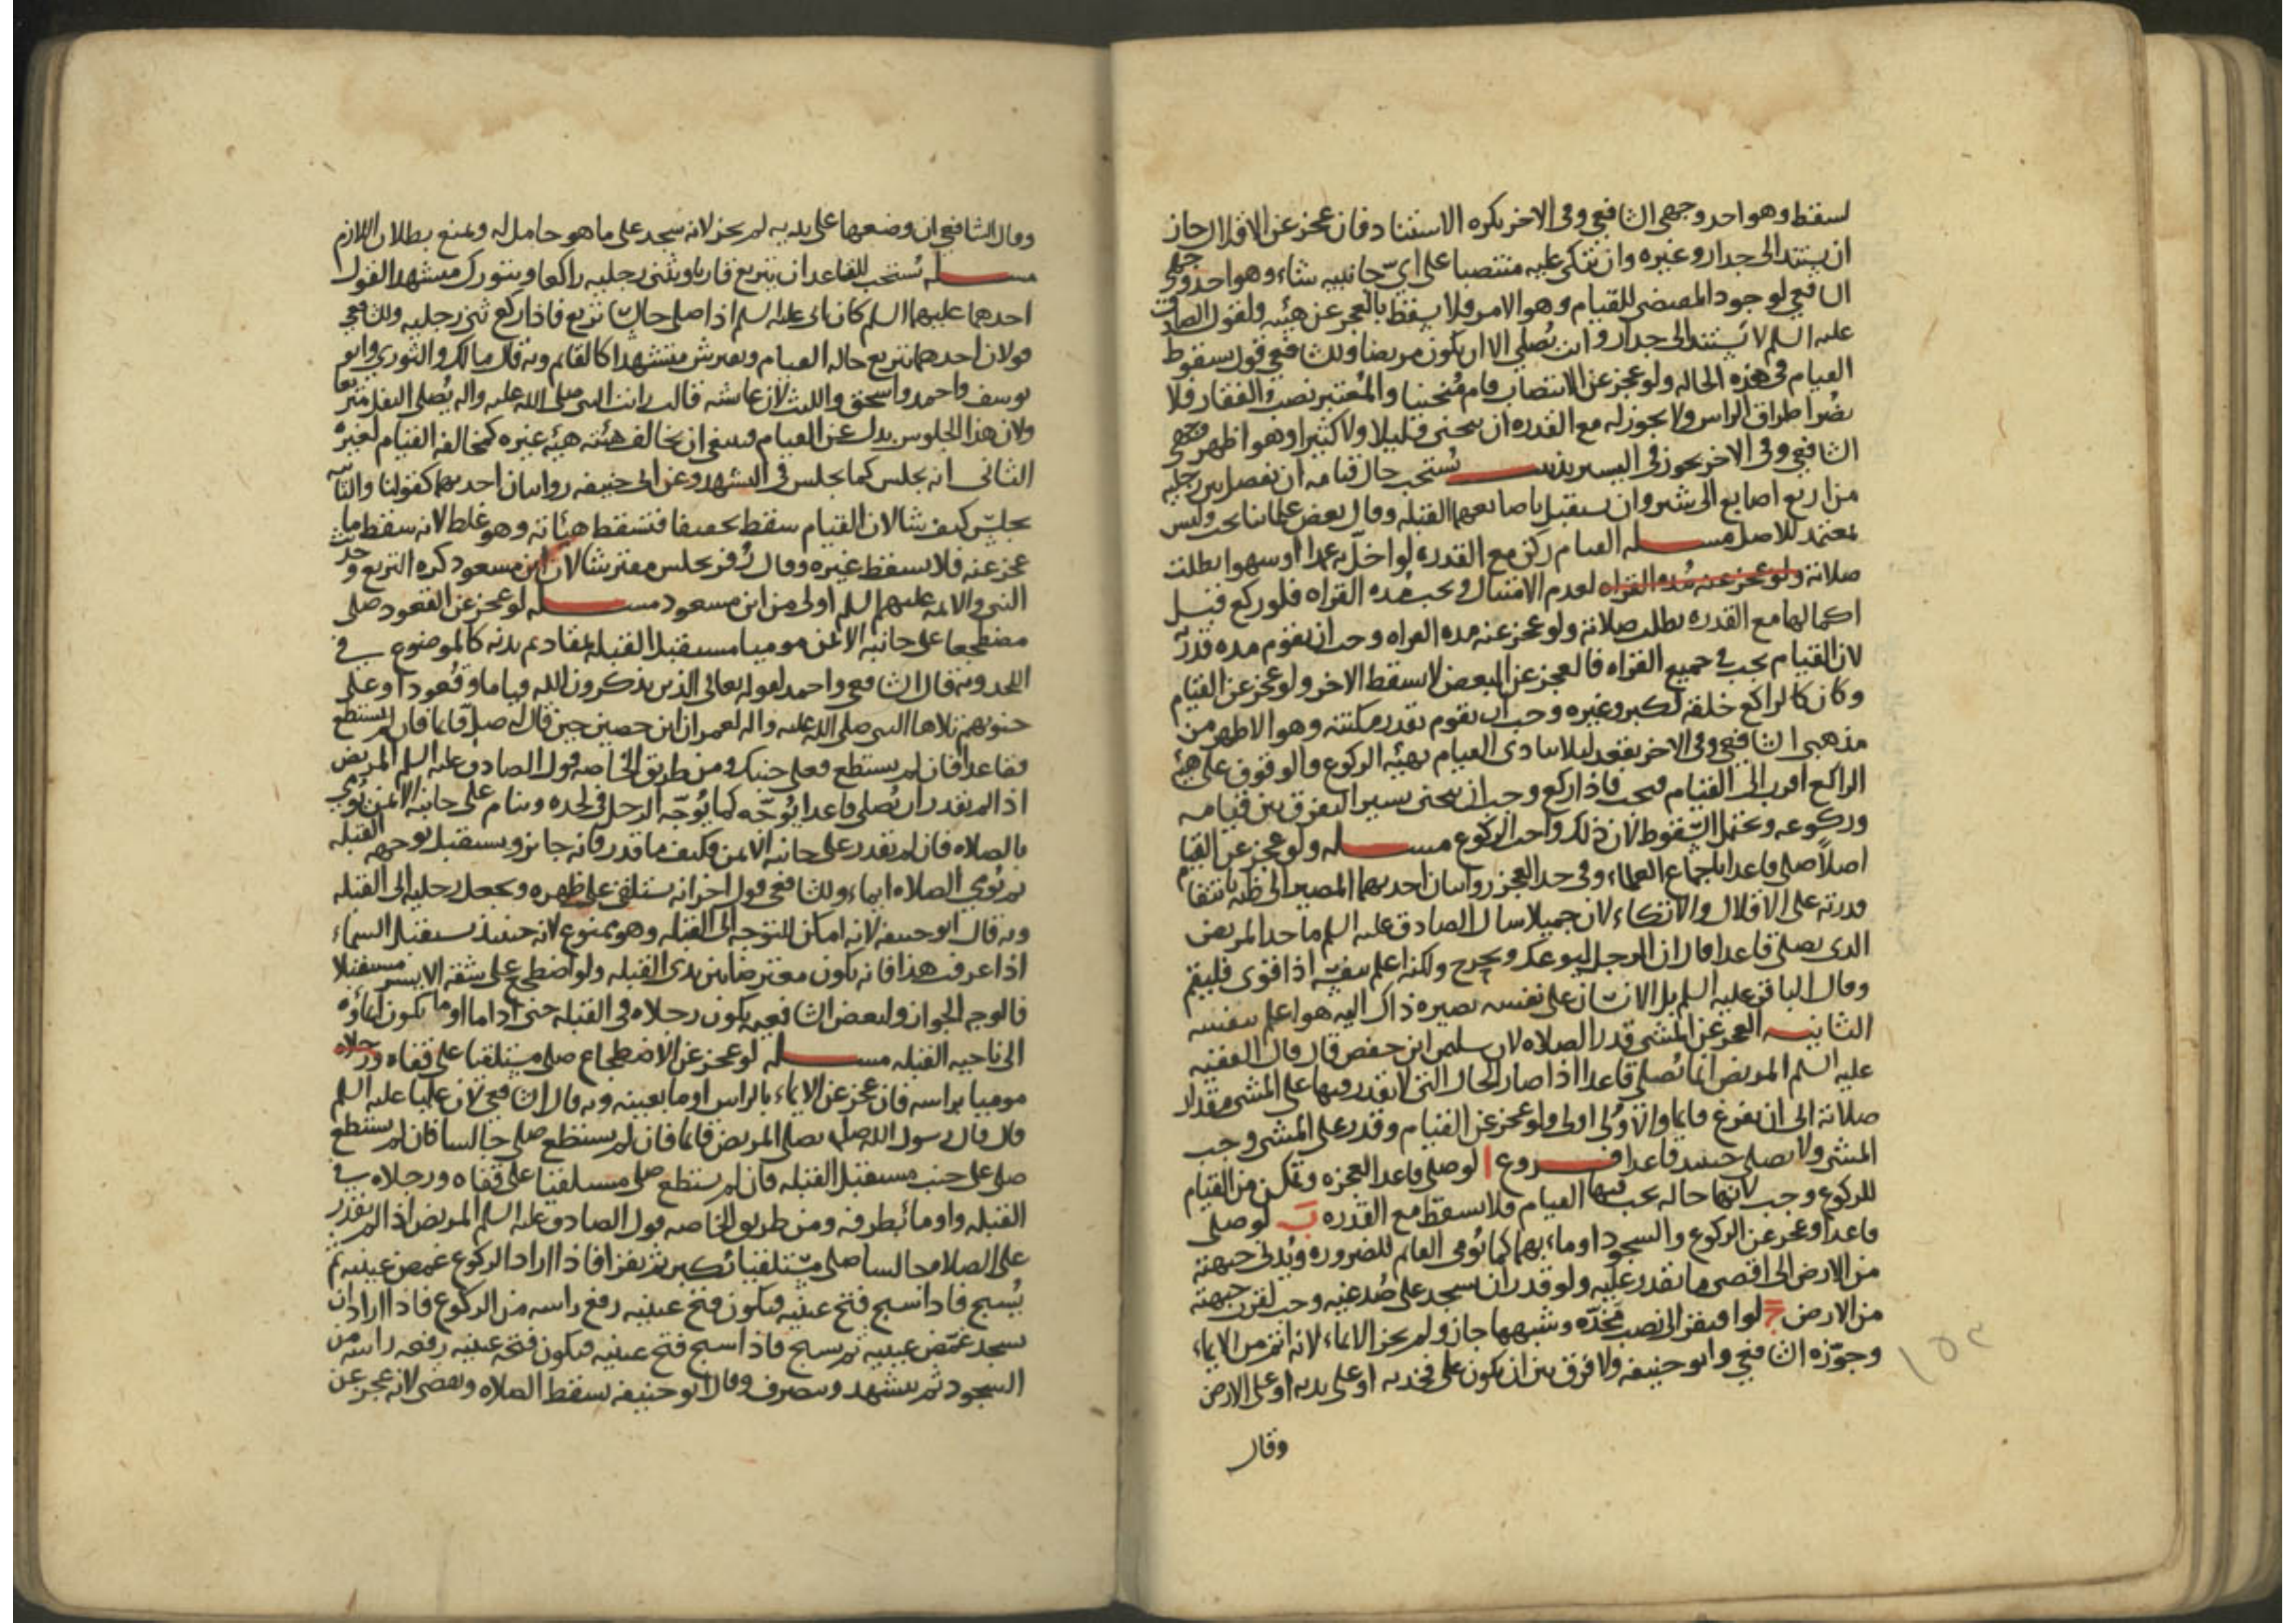 لسقط وهو احد وجهى الشافعي وفى الاخر يكره الاستناد فان عجز عن الاقلال جاز
ان يستند الى جدار وغيره وان يتكى عليه منتصبا على اىّ جانبيه شاء وهو احد وجهى
الشافعي لوجود المقتضى للقيام وهو الامر ولا يسقط بالعجز عن هيئه ولقول الصادق
عليه السلم لا تستند الى جدار وانت تُصلى الا ان يكون مريضا وللشافعي قول بسقوط
القيام فى هذه الحاله ولو عجز عن الانتصاب قام مُنحنيا والمُعتبر نصب الفقار فلا
يضُر اطراق الراس ولا يجوز له مع القدره ان ينحنى قليلا ولا كثيرا وهو اظهر وجهى
الشافعي وفى الاخر يجوز فى اليسير تذنيب يُستحب حال قيامه ان يفصل بين رجليه
من اربع اصابع الى شبر وان يستقبل باصابعهما القبله وقال بعض علمائنا يجب وليس
بمعتمد للاصل مسله القيام ركن مع القدره لو اخلّ به عمدا او سهوا بطلت
صلاته ولو عجز عنه مُده القراه لعدم الامتثال ويجب مُده القراه فلو ركع قبل
اكمالها مع القدره بطلت صلاته ولو عجز عنه مده القراه وجب ان يقوم مده قدرته
لان القيام يجب فى جميع القراه فالعجز عن البعض لا يسقط الاخر ولو عجز عن القيام
وكان كالراكع خلقه لكبر وغيره وجب ان يقوم بقدر مكنته وهو الاظهر من
مذهبى الشافعي وفى الاخر يقعد ليلا يتادى القيام بهيئه الركوع والوقوف على هيئه
الراكع اقرب الى القيام فيجب فاذا ركع وجب ان ينحنى يسيرا ليفرق بين قيامه
وركوعه ويحتمل السّقوط لان ذلك واجب الركوع مسله ولو عجز عن القيام
اصلاً صلى قاعدا باجماع العلماء وفى حد العجز روايتان احديهما المصير الى ظنه بانتفاء
قدرته على الاقلال والاتكاء لان جميلا سال الصادق عليه السلم ما حد المريض
الذى يصلى قاعدا قال ان الرجل ليوعك ويحرج ولكنه اعلم بنفسه اذا قوى فليقم
وقال الباقر عليه السلم بل الانسان على نفسه بصيره ذاك اليه هو اعلم بنفسه
الثانيه العجز عن المشى قدر الصلاه لان سليمن ابن حفص قال قال الفقيه
عليه السلم المريض انما يُصلى قاعدا اذا صار بالحال التى لا يقدر فيها على المشى مقدار
صلاته الى ان يفرغ قائما والاوُلى اولى ولو عجز عن القيام وقدر على المشى وجب
المشى ولا يصلى حينيذ قاعدا فروع ا لو صلى قاعدا لعجزه وتمكن من القيام
للركوع وجب لانها حاله يجب فيها القيام فلا يسقط مع القُدره ب لو صلى
قاعدا وعجز عن الركوع والسجود اوماء بهما كما يُومى القائم للضروره ويُدنى جبهته
من الارض الى اقصى ما يقدر عليه ولو قدر ان يسجد على صُدغيه وجب لقرب جبهته
من الارض ج لو افتقر الى نصب مخدّه وشبهها جاز ولم يجز الايماء لانه اتم من الايماء
وجوّزه الشافعي وابو حنيفه ولا فرق بين ان يكون على فخذيه او على يديه او على الارض
وقال
وقال الشافعي ان وضعها على يديه لم يجز لانه سجد على ما هو حامل له ونمنع بطلان اللازم
مسله يُستحب للقاعد ان يتربع قاريا ويثنى رجليه راكعا ويتورك متشهدا لقول
احدهما عليهما السلم كان ابى عليه السلم اذا صلى جالسا تربع فاذا ركع ثنى رجليه وللشافعي
قولان احدهما يتربع حاله القيام ويفترش متشهدا كالقائم وبه قال مالك والثورى وابو
يوسف واحمد واسحق والليث لان عائشه قالت رايت النبى صلى الله عليه واله يُصلى النفل متربعا
ولان هذا الجلوس بدل عن القيام فينبغى ان يخالف هيئته هيئه غيره كمخالفه القيام لغيره
الثانى انه يجلس كما يجلس فى التشهد وعن ابى حنيفه روايتان احديهما كقولنا والثانيه
يجلس كيف شا لان القيام سقط تخفيفا فتسقط هيئاته وهو غلط لانه سقط ما
عجز عنه فلا يسقط غيره وقال زُفر يجلس مفترشا لان ابن مسعود كره التربع وحديث
النبى والائمه عليهم السلم اولى من ابن مسعود مسله لو عجز عن القعود صلى
مضطجعا على جانبه الايمن موميا مستقبل القبله بمقاديم بدنه كالموضوع فى
اللحد وبه قال الشافعي واحمد لقوله تعالى الذين يذكرون الله قياما وقُعودا وعلى
جنوبهم تلاها النبى صلى الله عليه واله لعمران ابن حصين حين قال له صلّ قائما فان لم تستطع
فقاعدا فان لم تستطع فعلى جنبك ومن طريق الخاصه قول الصادق عليه السلم المريض
اذا لم يقدر ان يُصلى قاعدا يُوجّه كما يُوجّه الرجل فى لحده وينام على جانبه الايمن يُومى
بالصلاه فان لم يقدر على جانبه الايمن فكيف ما قدر فانه جائز ويستقبل بوجهه القبله
ثم يُومى الصلاه ايماء وللشافعي قول اخر انه يستلقى على ظهره ويجعل رجليه الى القبله
وبه قال ابو حنيفه لانه امكن للتوجه الى القبله وهو ممنوع لانه حينيذ يستقبل السماء
اذا عرفت هذا فانه يكون معترضا بين يدى القبله ولو اضطجع على شقه الايسر مستقبلا
فالوجه الجواز ولبعض الشافعيه يكون رجلاه فى القبله حتى اذا ما اوما يكون ايماؤه
الى ناحيه القبله مسله لو عجز عن الاضطجاع صلى مستلقيا على قفاه ورجلاه
موميا براسه فان عجز عن الايماء بالراس اوما بعينيه وبه قال الشافعي لان عليا عليه السلم
قال قال رسول الله صلى يصلى المريض قائما فان لم يستطع صلى جالسا فان لم يستطع
صلى على جنب مستقبل القبله فان لم يستطع صلى مستلقيا على قفاه ورجلاه فى
القبله واوما بطرفه ومن طريق الخاصه قول الصادق عليه السلم المريض اذا لم يقدر
على الصلاه جالسا صلى مستلقيا يُكبر ثم يقرا فاذا اراد الركوع غمض عينيه ثم
يُسبح فاذا سبح فتح عينيه فيكون فتح عينيه رفع راسه من الركوع فاذا اراد ان
يسجد غمّض عينيه ثم يسبح فاذا سبح فتح عينيه فيكون فتحه عينيه رفعه راسه من
السجود ثم يتشهد وينصرف وقال ابو حنيفه يسقط الصلاه ويقضى لانه عجز عن